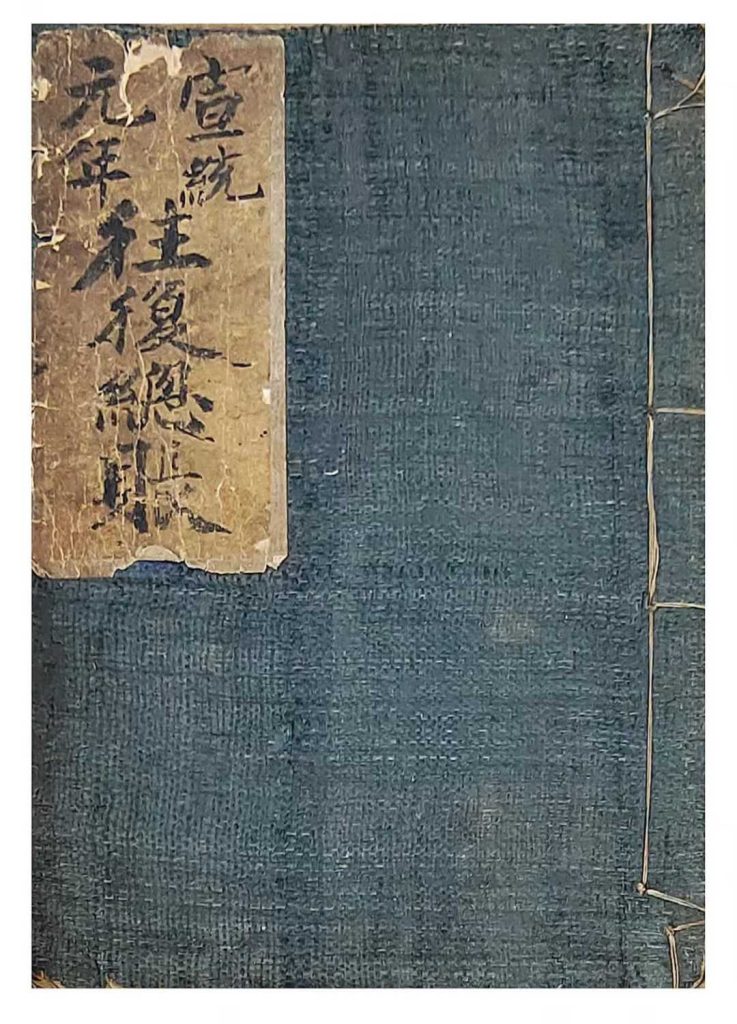 宣統
元年
往復總賬